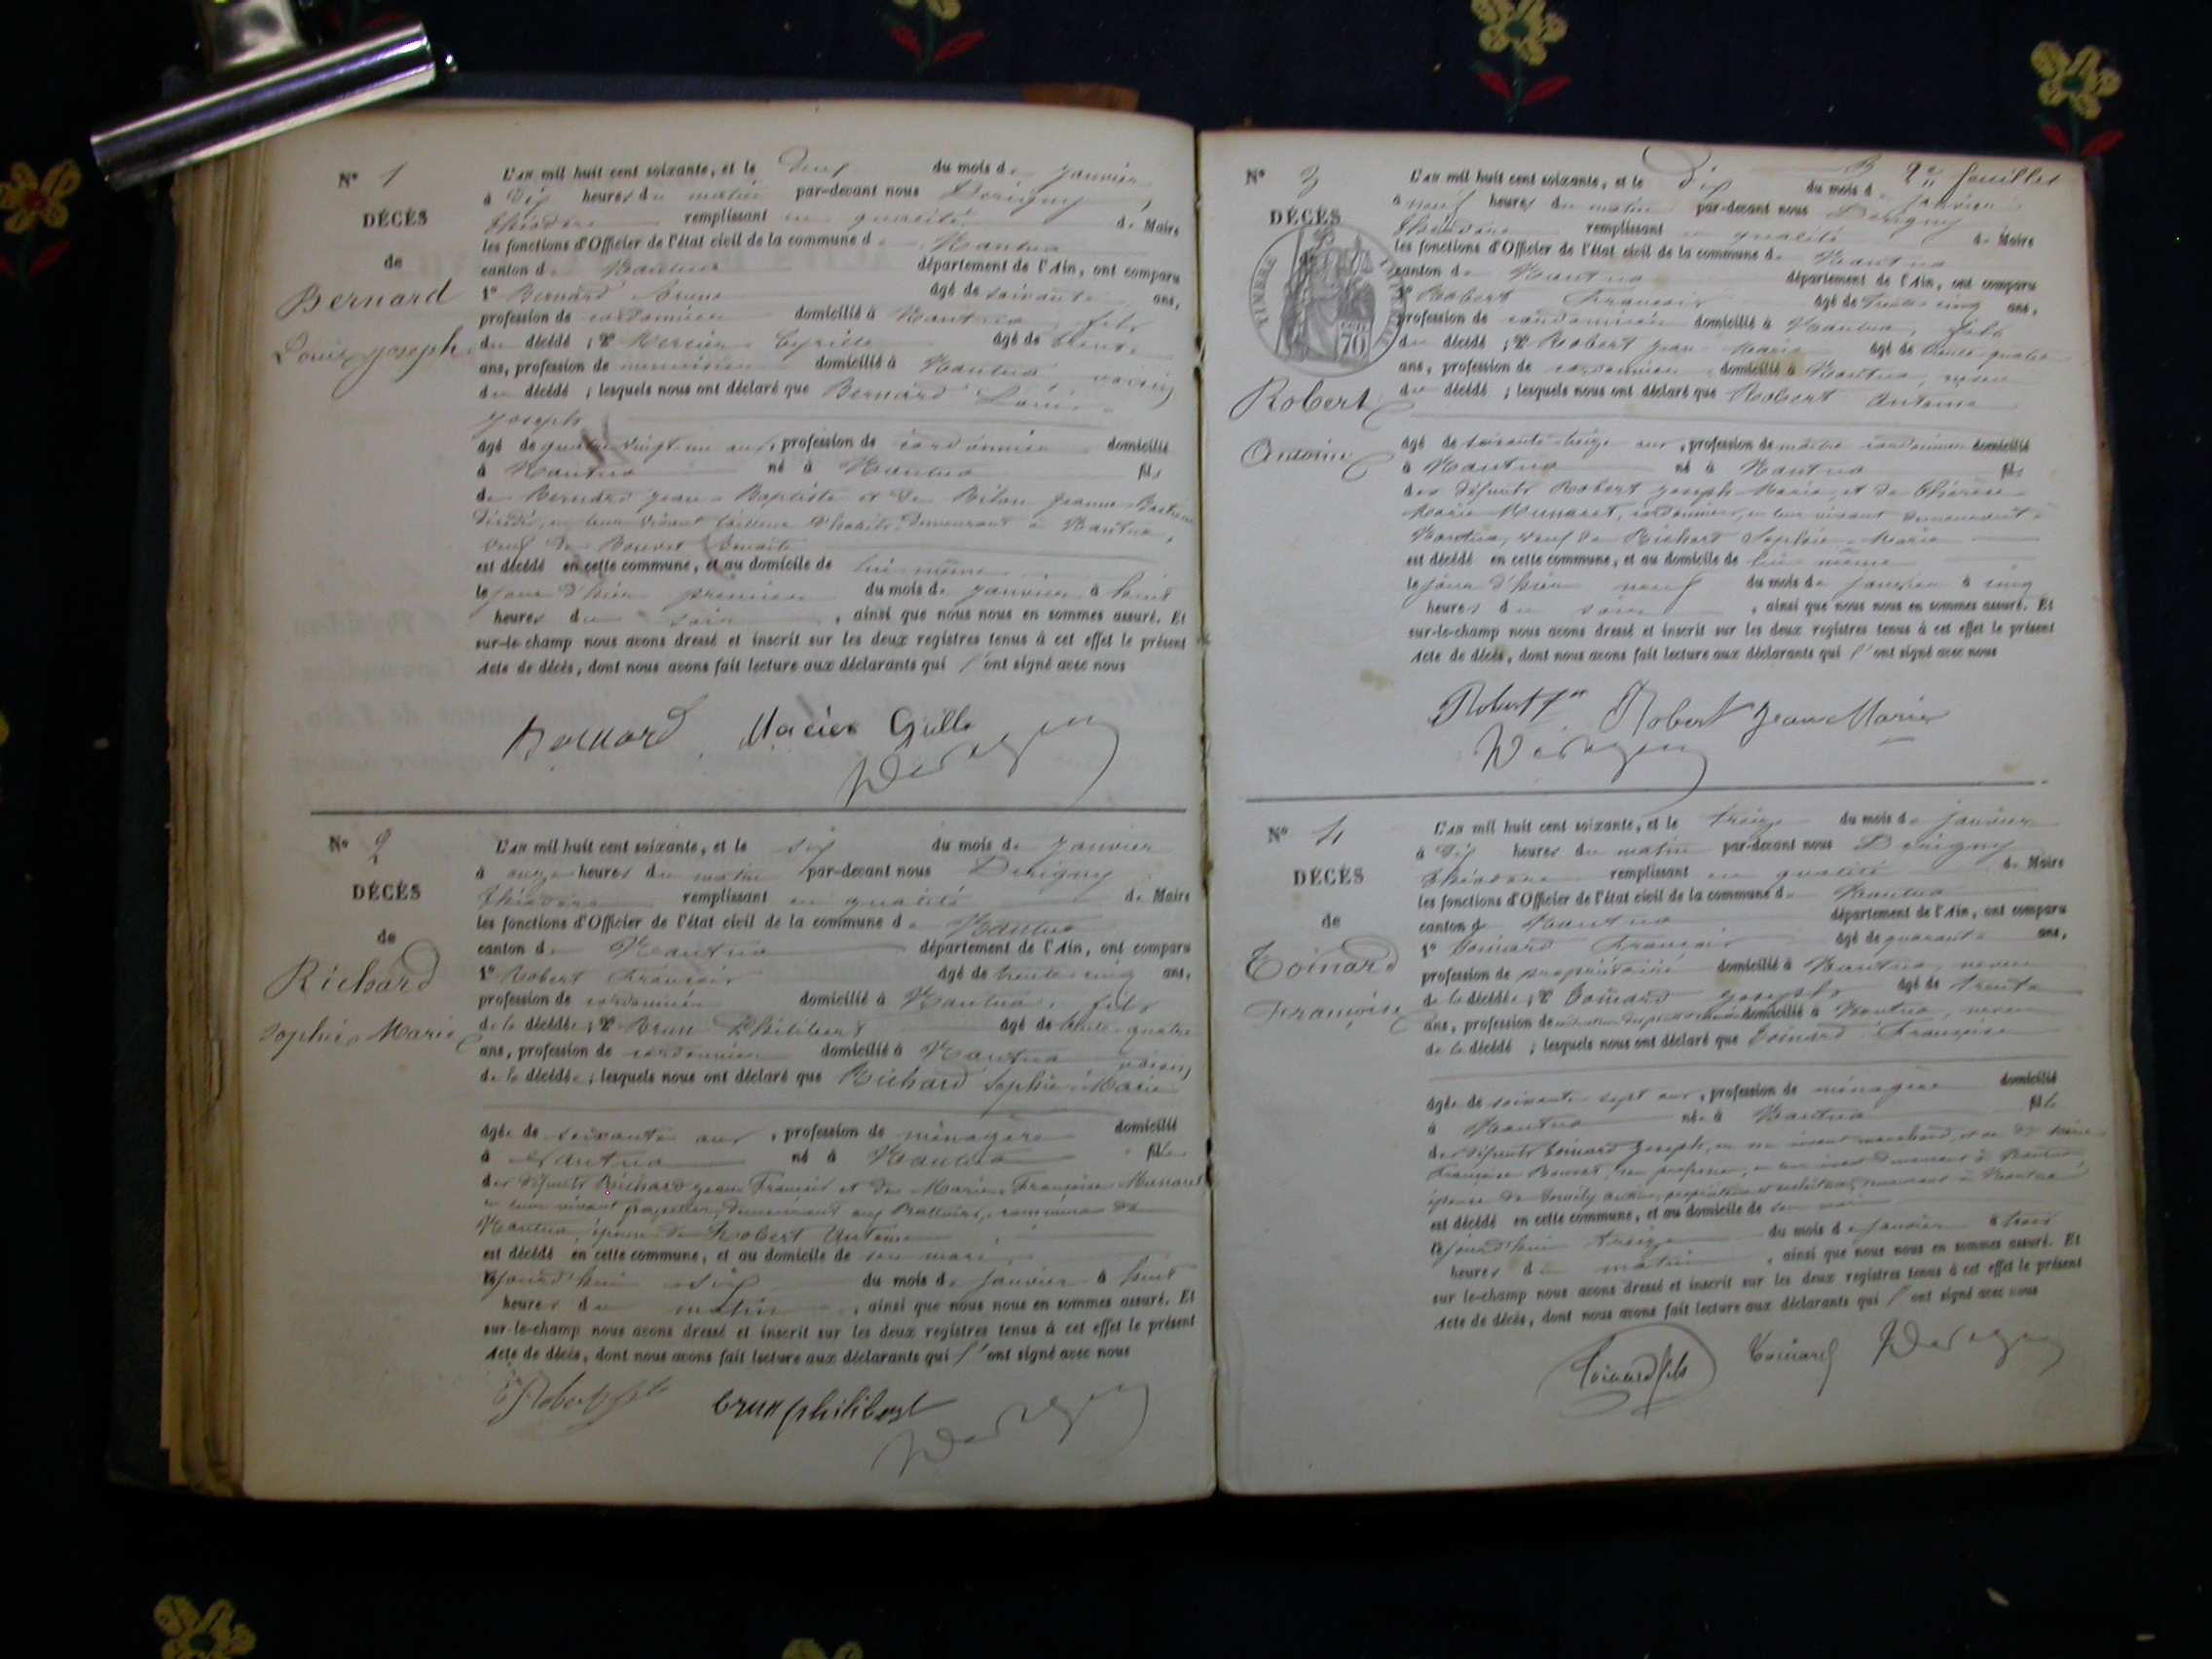 N° 1
DÉCÈS
de
Bernard
Louis Joseph
L'an mil huit cent soixante, et le deux du mois de janvier
à dix heures du matin par-devant nous Derigny
Théodore remplissant en qualité de Maire
les fonctions d'Officier de l'état civil de la commune de Nantua
canton de Nantua département de l'Ain, ont comparu
1° Bernard Bruno âgé de soixante ans,
profession de cordonnier domicilié à Nantua, fils
du décédé ; 2° Mercier Cyrille âgé de trente
ans, profession de menuisier domicilié à Nantua, voisin
du décédé ; lesquels nous ont déclaré que Bernard Louis
Joseph
âgé de quatre-vingt-un ans, profession de cordonnier domicilié
à Nantua né à Nantua fils
de Bernard Jean-Baptiste et de Jeanne
en leur vivant tailleur d'habits, demeurant à Nantua,
veuf de Bouvet
est décédé en cette commune, et au domicile de lui-même
le jour d'hier premier du mois de janvier à huit
heures du soir, ainsi que nous nous en sommes assuré. Et
sur-le-champ nous avons dressé et inscrit sur les deux registres tenus à cet effet le présent
Acte de décès, dont nous avons fait lecture aux déclarants qui l'ont signé avec nous
Bernard
N° 2
DÉCÈS
de
Richard
Sophie Marie
L'an mil huit cent soixante, et le six du mois de janvier
à onze heures du matin par-devant nous Derigny
Théodore remplissant en qualité de Maire
les fonctions d'Officier de l'état civil de la commune de Nantua
canton de Nantua département de l'Ain, ont comparu
1° Robert François âgé de trente-cinq ans,
profession de cordonnier domicilié à Nantua, fils
de la décédée ; 2° Brun Philibert âgé de trente-quatre
ans, profession de cordonnier domicilié à Nantua voisin
de la décédée ; lesquels nous ont déclaré que Richard Sophie-Marie
âgée de soixante ans, profession de ménagère domicilié
à Nantua né à Nantua fille
des défunts Richard Jean François et de Marie Françoise Munaret
en leur vivant demeurant aux commune de
Nantua, épouse de Robert Antoine
est décédé en cette commune, et au domicile de son mari
le jourd'hui six du mois de janvier à huit
heures du matin, ainsi que nous nous en sommes assuré. Et
sur-le-champ nous avons dressé et inscrit sur les deux registres tenus à cet effet le présent
Acte de décès, dont nous avons fait lecture aux déclarants qui l'ont signé avec nous
Robert fils brun philibert
2e feuillet
N° 3
DÉCÈS
TIMBRE
70
Robert
Antoine
L'an mil huit cent soixante, et le dix du mois de janvier
à neuf heures du matin par-devant nous Derigny
Théodore remplissant en qualité de Maire
les fonctions d'Officier de l'état civil de la commune de Nantua
canton de Nantua département de l'Ain, ont comparu
1° Robert François âgé de trente-cinq ans,
profession de cordonnier domicilié à Nantua, fils
du décédé ; 2° Robert Jean-Marie âgé de trente-quatre
ans, profession de cordonnier domicilié à Nantua, neveu
du décédé ; lesquels nous ont déclaré que Robert Antoine
âgé de soixante-treize ans, profession de maître cordonnier domicilié
à Nantua né à Nantua fils
des défunts Robert Joseph-Marie et de Thérèse
Marie Munaret, cordonnier, en leur vivant demeurant à
Nantua, veuf de Richard Sophie-Marie
est décédé en cette commune, et au domicile de lui-même
le jour d'hier neuf du mois de janvier à cinq
heures du soir, ainsi que nous nous en sommes assuré. Et
sur-le-champ nous avons dressé et inscrit sur les deux registres tenus à cet effet le présent
Acte de décès, dont nous avons fait lecture aux déclarants qui l'ont signé avec nous
Robert Robert Jean Marie
N° 4
DÉCÈS
de
Toinard
Françoise
L'an mil huit cent soixante, et le treize du mois de janvier
à dix heures du matin par-devant nous Derigny
Théodore remplissant en qualité de Maire
les fonctions d'Officier de l'état civil de la commune de Nantua
canton de Nantua département de l'Ain, ont comparu
1° Toinard François âgé de quarante ans,
profession de propriétaire domicilié à Nantua, neveu
de la décédée ; 2° Toinard Joseph âgé de trente
ans, profession de domicilié à Nantua, neveu
de la décédé ; lesquels nous ont déclaré que Toinard Françoise
âgée de soixante-sept ans, profession de ménagère domicilié
à Nantua née à Nantua fille
des défunts Toinard Joseph, en son vivant marchand, et de
Françoise Bouvet, sans profession, en son vivant demeurant à Nantua
épouse de propriétaire et demeurant à Nantua
est décédé en cette commune, et au domicile de son mari
le jourd'hui treize du mois de janvier à trois
heures du matin, ainsi que nous nous en sommes assuré. Et
sur-le-champ nous avons dressé et inscrit sur les deux registres tenus à cet effet le présent
Acte de décès, dont nous avons fait lecture aux déclarants qui l'ont signé avec nous
Toinard fils Toinard